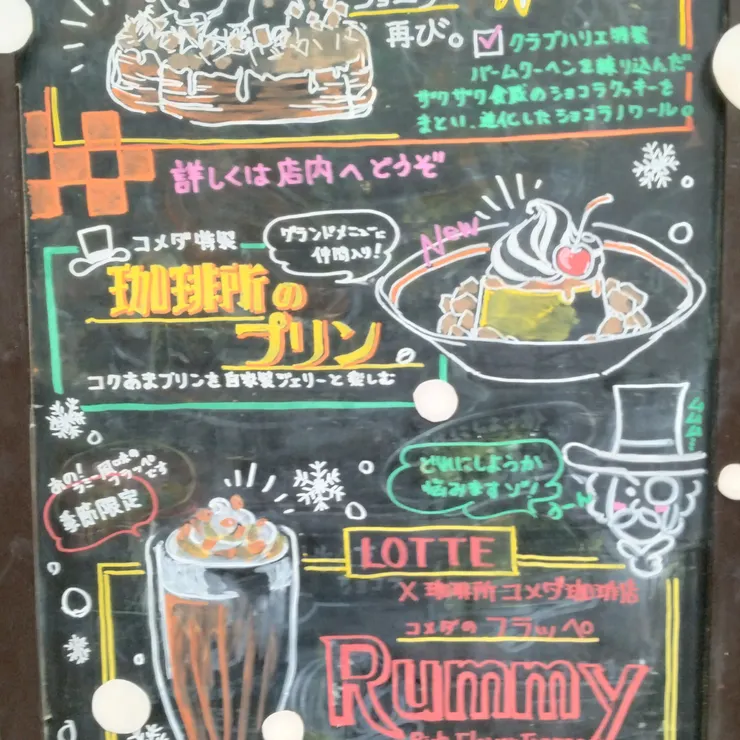 再び。
クラブハリエ特製
バームクーヘンを練り込んだ
ザクザク食感のショコラクッキーを
まとい、進化したショコラノワール。
詳しくは店内へどうぞ
コメダ特製
グランドメニューに
仲間入り!
New
珈琲所の
プリン
コクあまプリンを自家製ジェリーと楽しむ
あの!
ラミー風味の
フラッペです
季節限定
どれにしようか
悩みますゾ!
LOTTE
×珈琲所コメダ珈琲店
コメダのフラッペ
Rummy